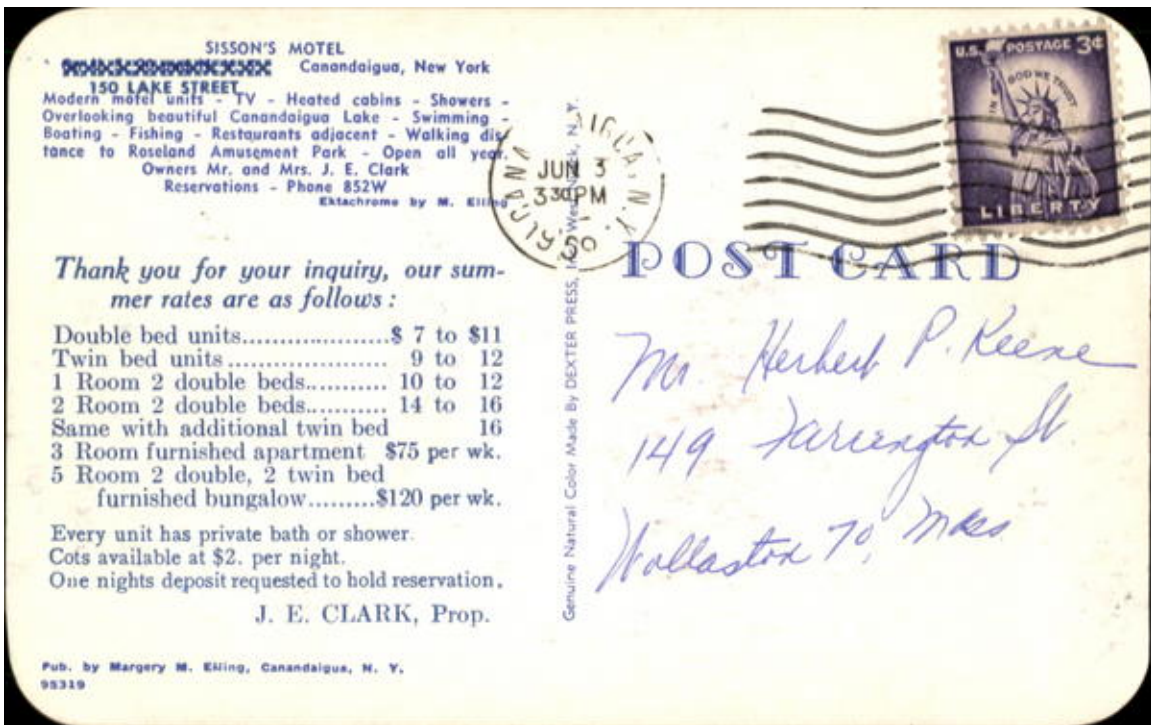 SISSON'S MOTEL
Canandaigua, New York
150 LAKE STREET
Modern motel units - TV - Heated cabins - Showers -
Overlooking beautiful Canandaigua Lake - Swimming -
Boating - Fishing - Restaurants adjacent - Walking dis-
tance to Roseland Amusement Park - Open all year.
Owners Mr. and Mrs. J. E. Clark
Reservations - Phone 852W
Ektachrome by M. Elling
Thank you for your inquiry, our sum-
mer rates are as follows :
Double bed units....................$ 7 to $11
Twin bed units ...................... 9 to 12
1 Room 2 double beds........... 10 to 12
2 Room 2 double beds........... 14 to 16
Same with additional twin bed 16
3 Room furnished apartment $75 per wk.
5 Room 2 double, 2 twin bed
furnished bungalow.........$120 per wk.
Every unit has private bath or shower.
Cots available at $2. per night.
One nights deposit requested to hold reservation.
J. E. CLARK, Prop.
Pub. by Margery M. Elling, Canandaigua, N. Y.
95319
Genuine Natural Color Made By DEXTER PRESS, West Nyack, N. Y.
JUN 3
3 30 PM
U.S. POSTAGE 3¢
IN GOD WE TRUST
LIBERTY
POST CARD
Mr. Herbert P. Keene
149 Farrington St.
Wollaston 70, Mass